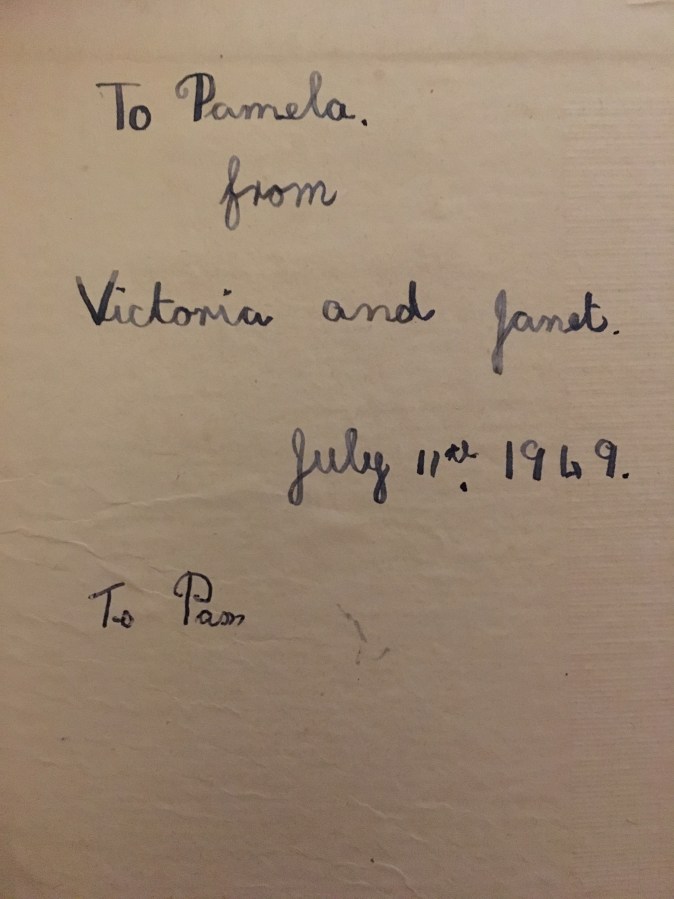 To Pamela.
from
Victoria and Janet.
July 11th. 1949.
To Pam